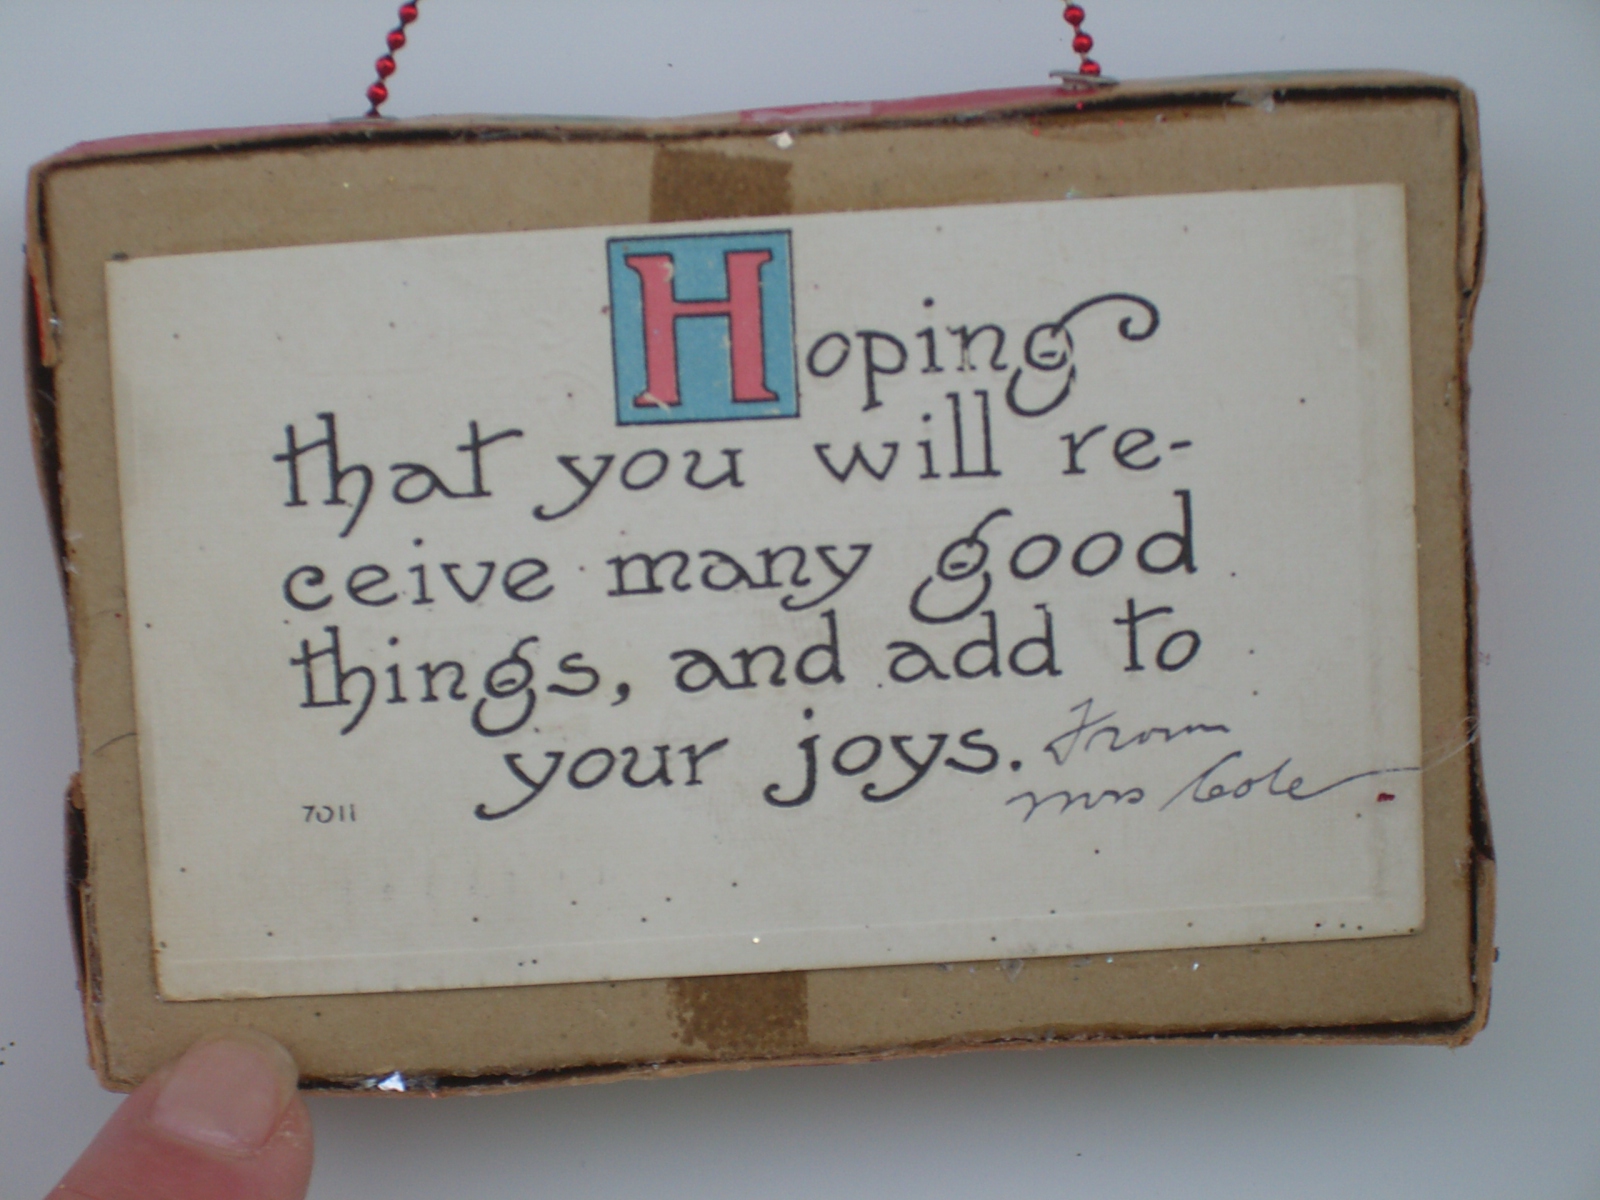 Hoping
that you will re-
ceive many good
things, and add to
your joys. From
Mrs Cole
7011